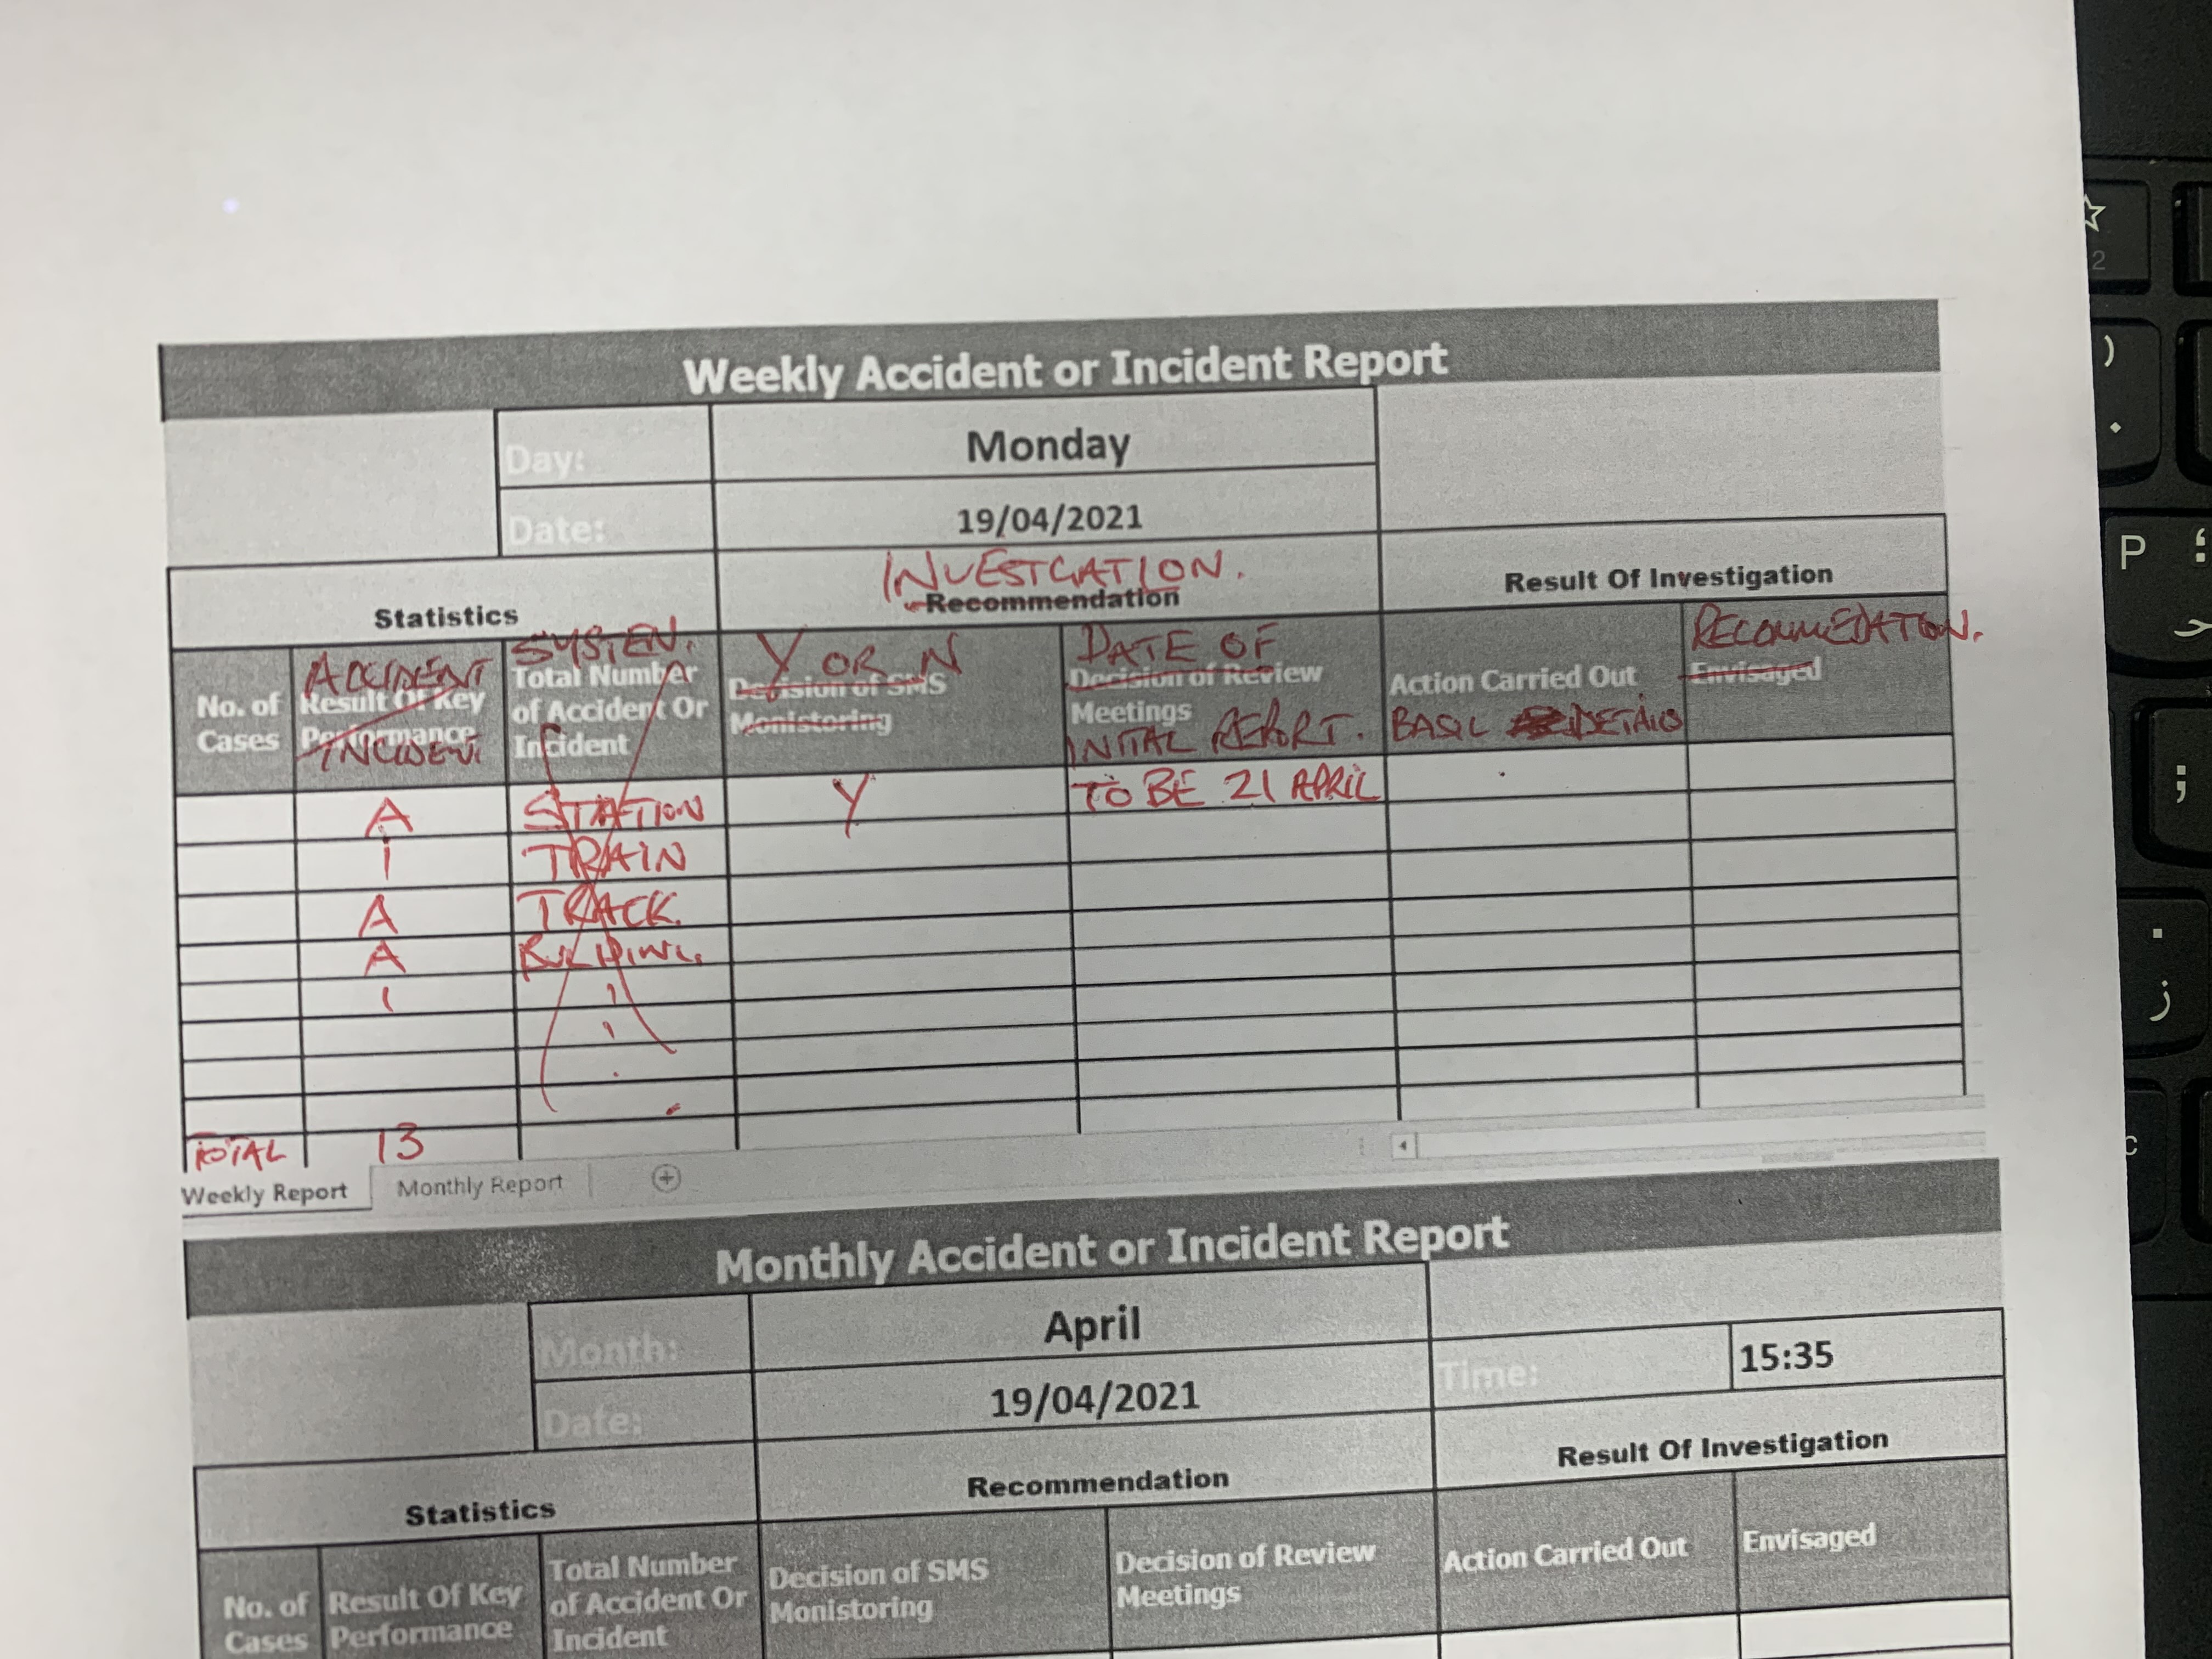 Weekly Accident or Incident Report
Day: Monday
Date: 19/04/2021
INVESTGATION.
Statistics Recommendation Result Of Investigation
No. of Cases
ACCIDENT
Result Of Key
Performance
INCIDENT.
SYSTEM.
Total Number
of Accident Or
Incident
Y OR N
Decision of SMS
Monistoring
DATE OF
Decision of Review
Meetings
INITIAL REPORT.
Action Carried Out
BASIC DETAILS
RECOMMEDATION.
Envisaged
A STATION Y TO BE 21 APRIL
I TRAIN
A TRACK.
A BUILDING.
I
TOTAL 13
Weekly Report Monthly Report
Monthly Accident or Incident Report
Month: April
Date: 19/04/2021 Time: 15:35
Statistics Recommendation Result Of Investigation
No. of
Cases
Result Of Key
Performance
Total Number
of Accident Or
Incident
Decision of SMS
Monistoring
Decision of Review
Meetings
Action Carried Out
Envisaged
2
)
P
؛
ح
;
ز
c